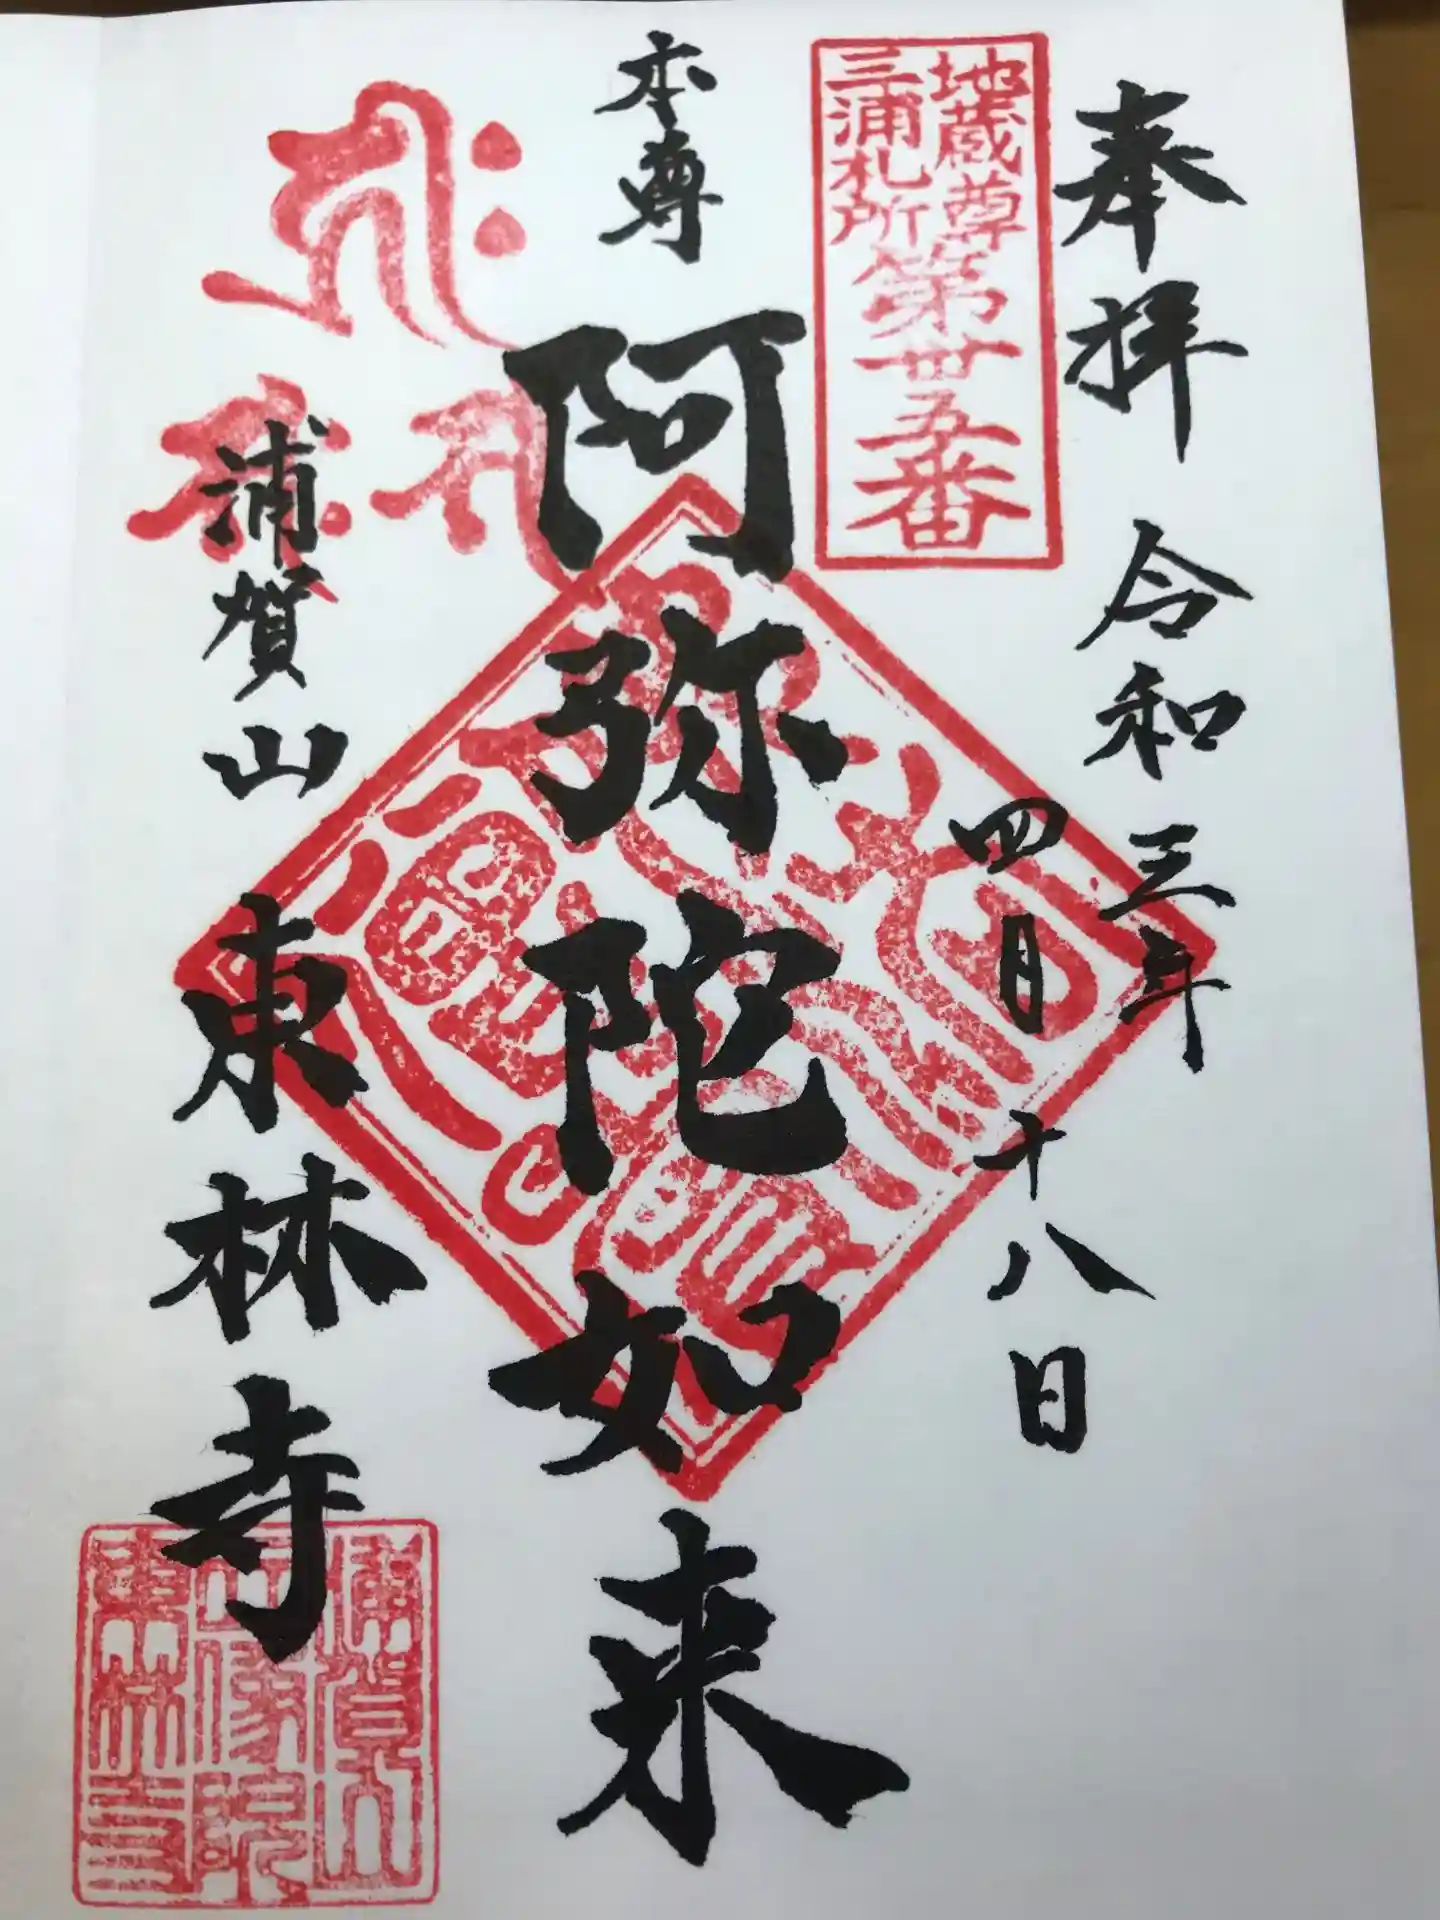 奉拝 令和三年
四月十八日
地蔵尊
三浦札所
第廿五番
本尊 阿弥陀如来
浦賀山 東林寺
浦賀山
東林寺